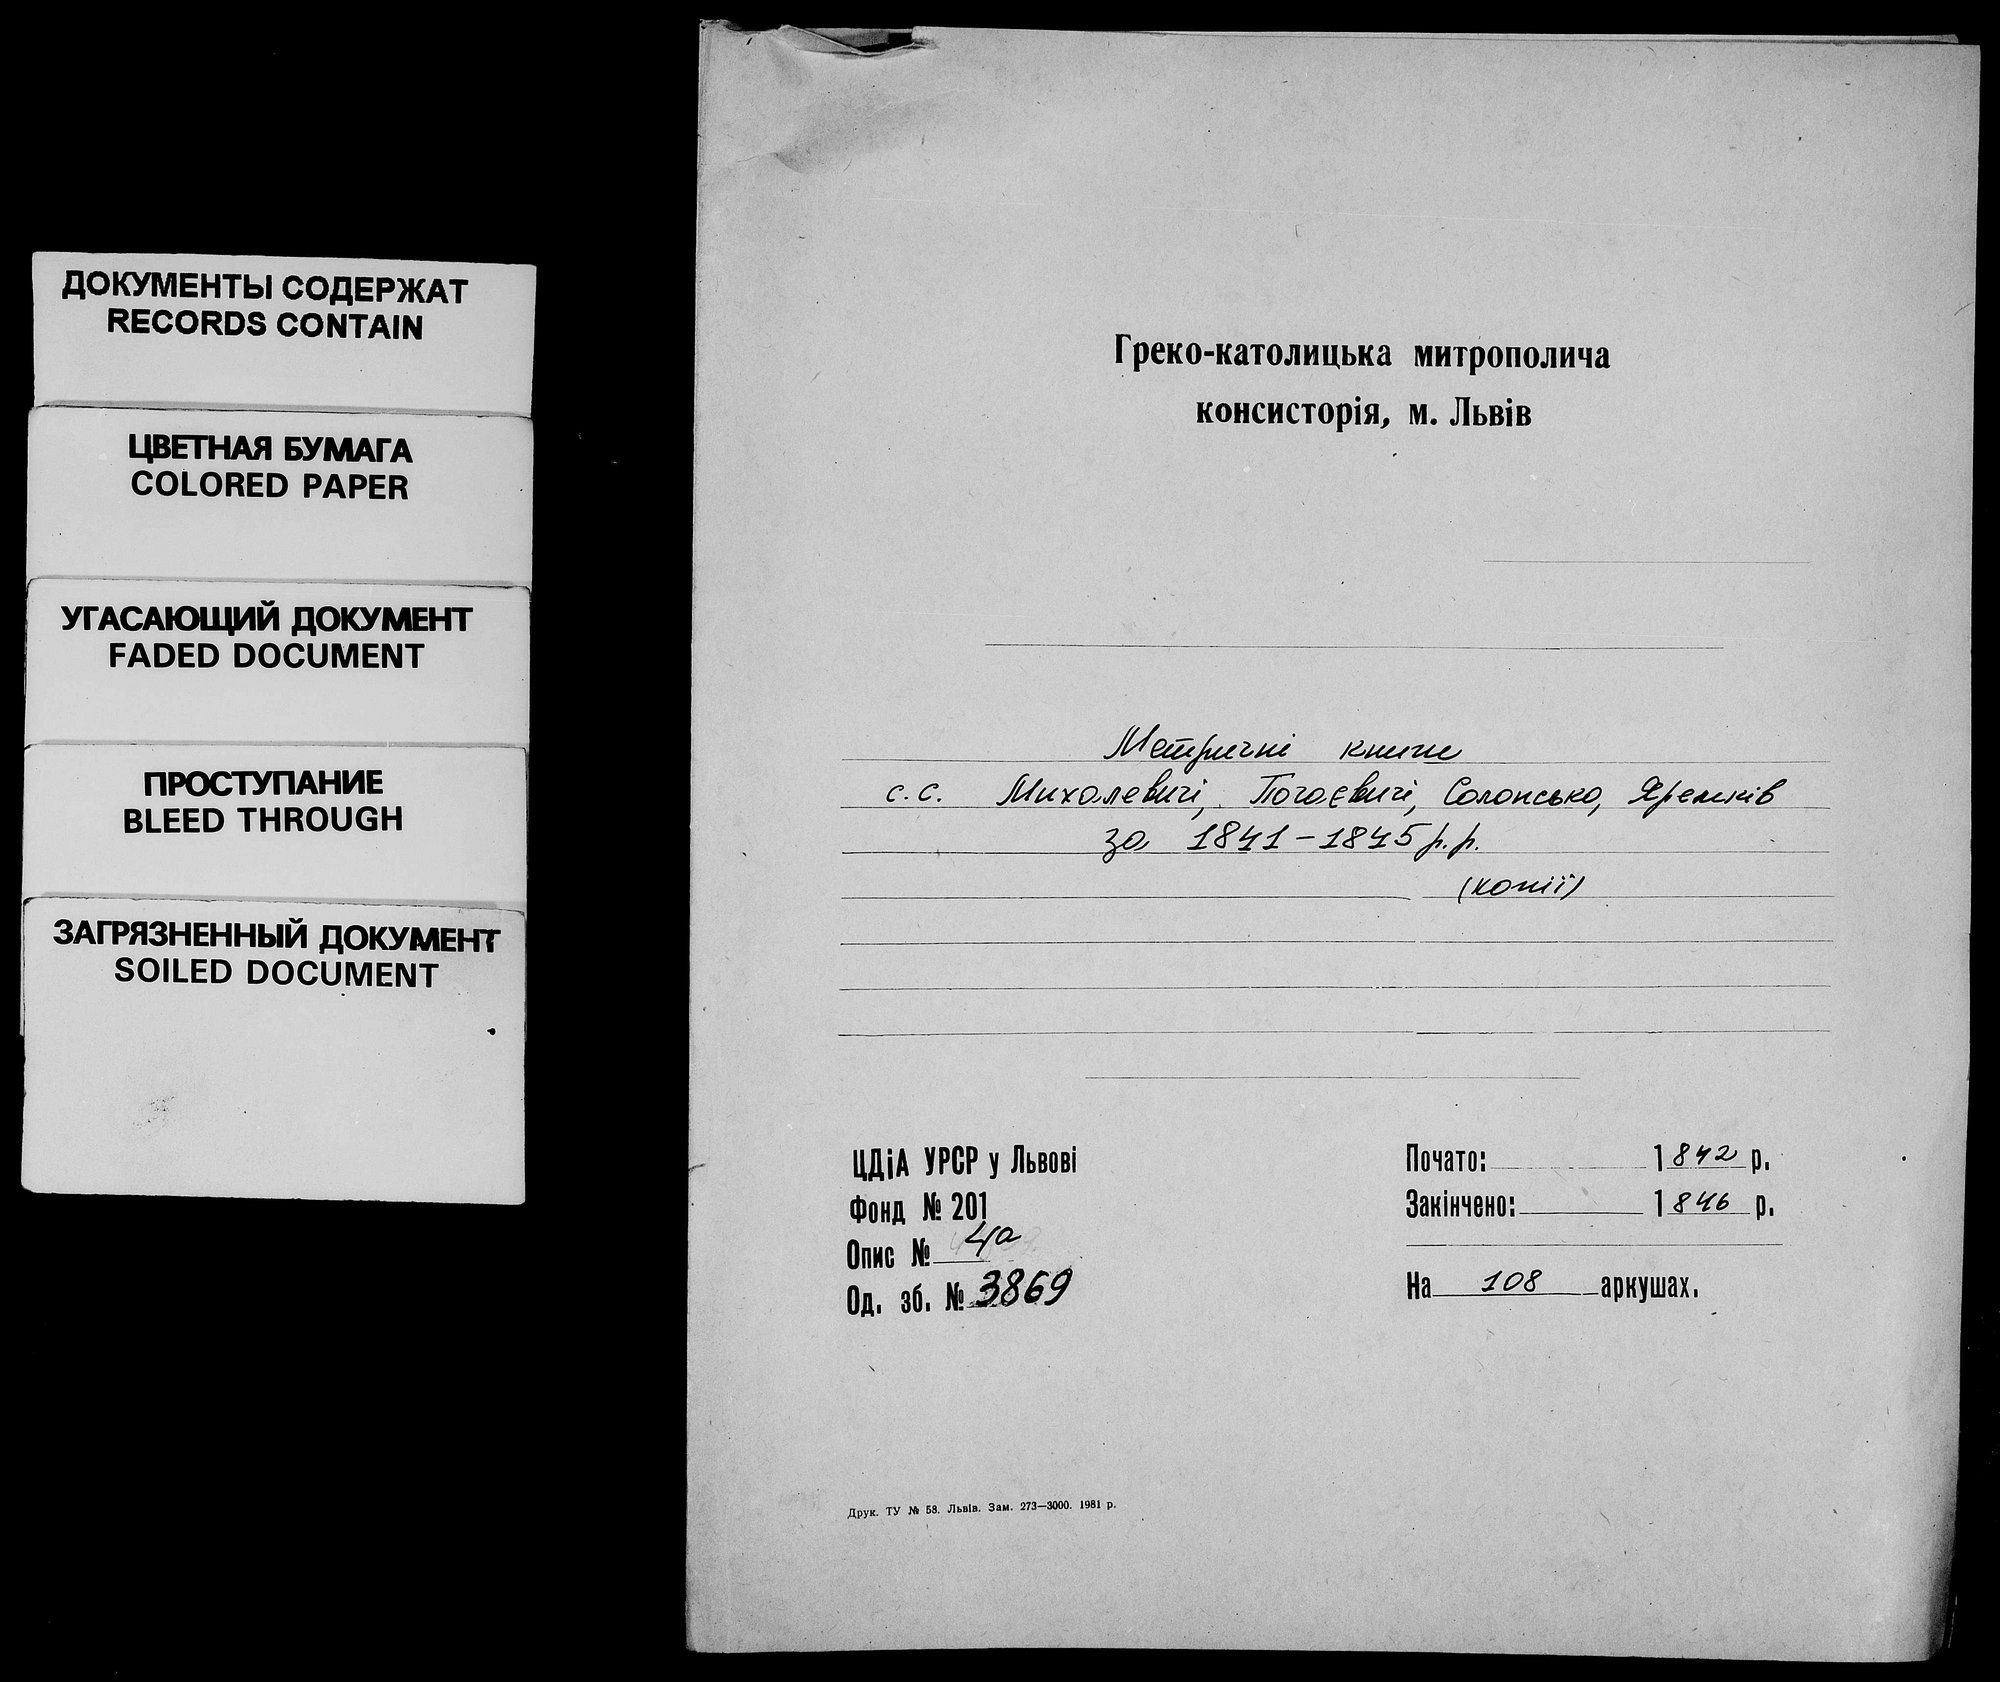 ДОКУМЕНТЫ СОДЕРЖАТ
RECORDS CONTAIN
ЦВЕТНАЯ БУМАГА
COLORED PAPER
УГАСАЮЩИЙ ДОКУМЕНТ
FADED DOCUMENT
ПРОСТУПАНИЕ
BLEED THROUGH
ЗАГРЯЗНЕННЫЙ ДОКУМЕНТ
SOILED DOCUMENT
Греко-католицька митрополича
консисторія, м. Львів
Метричні книги
с.с. Михалевичі, Почаєвичі, Солонсько, Яремків
за 1841-1845 р.р.
(копії)
ЦДіА УРСР у Львові
Фонд № 201
Опис № 4а
Од. зб. № 3869
Почато: 1842 р.
Закінчено: 1846 р.
На 108 аркушах.
Друк. ТУ № 58. Львів. Зам. 273—3000. 1981 р.